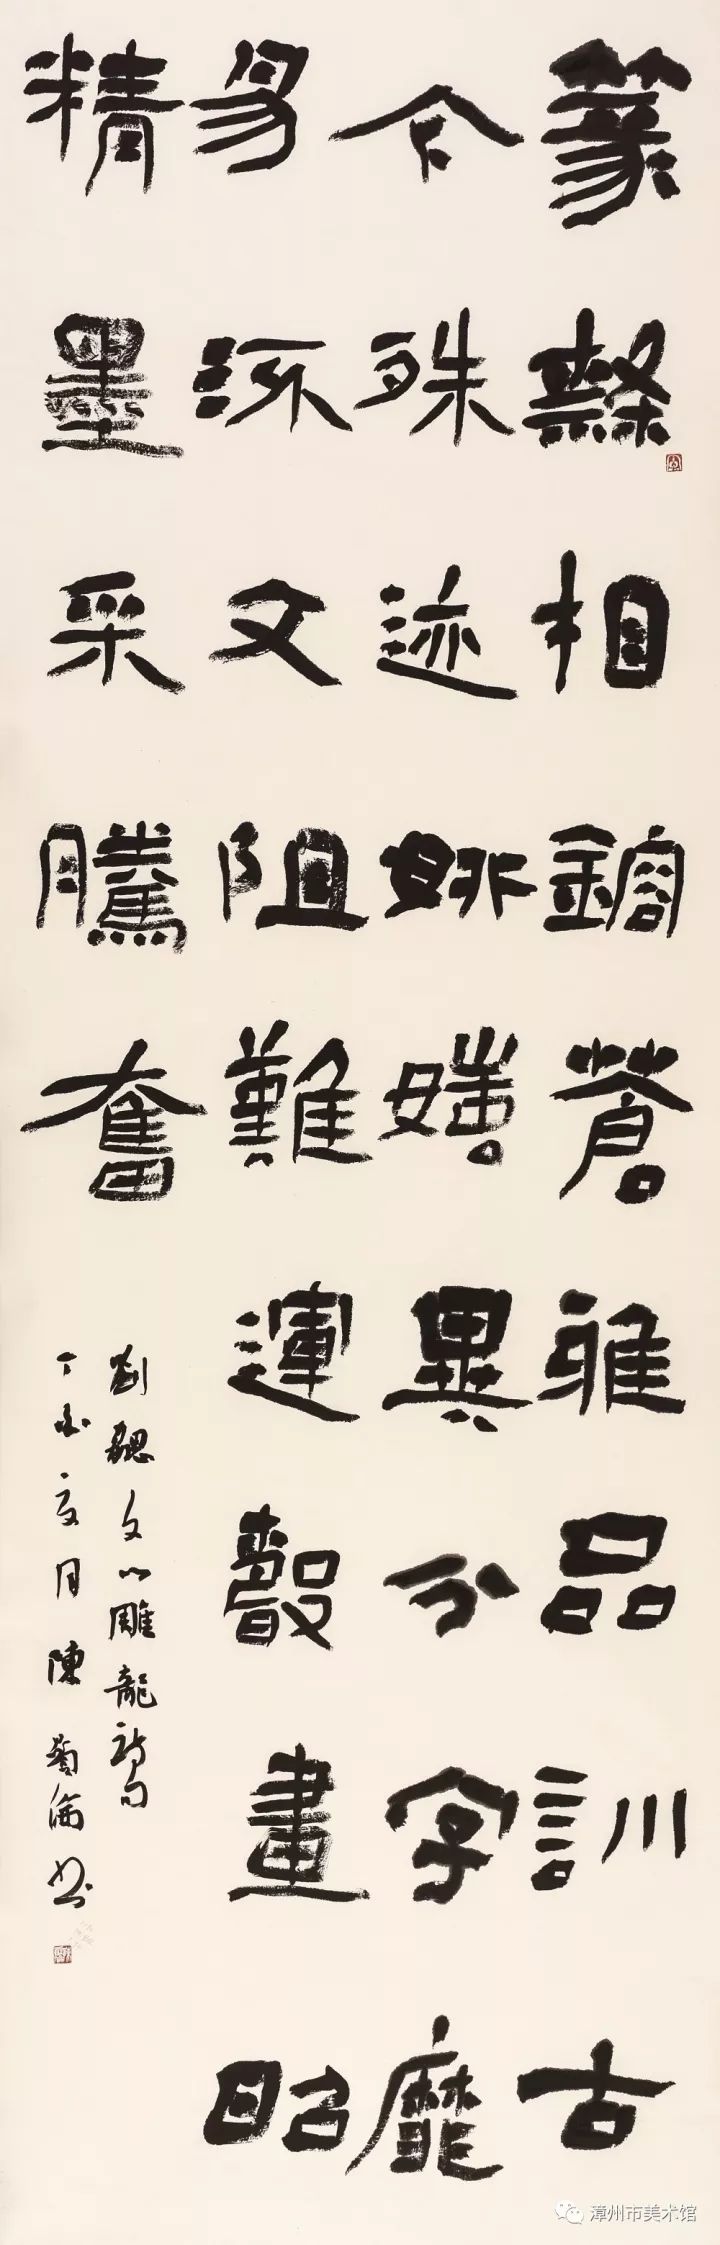 篆隸相鎔蒼雅品訓古
今殊迹妍媸異分字靡
易流文阻難運聲畫昭
精墨采騰奮
劉勰文心雕龍詩句
丁酉夏月陳書
漳州市美术馆